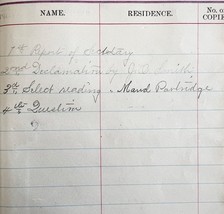 NAME. RESIDENCE. No. of COPIE
1st Report of Secretary
2nd Declamation by
3rd Select reading - Maud Partridge
4th Question